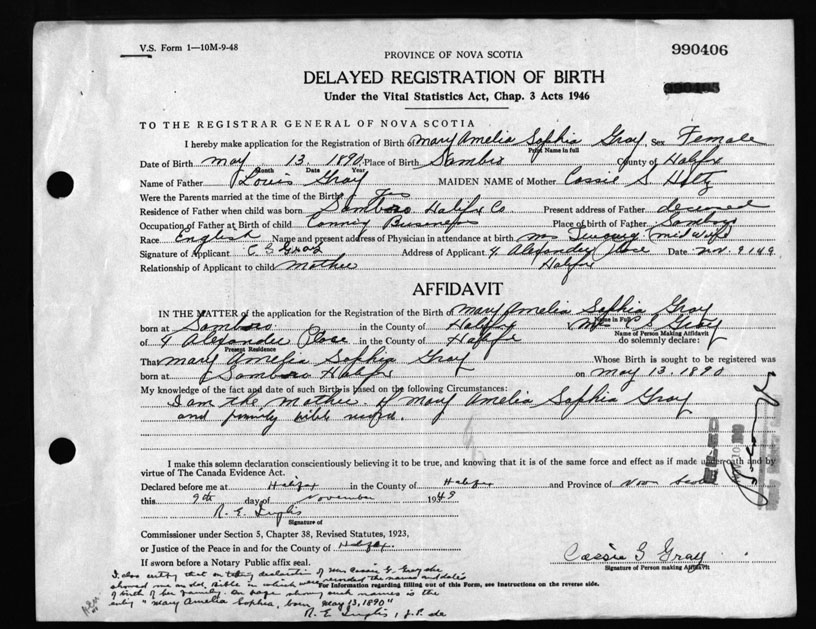 V.S. Form 1—10M-9-48
990406
PROVINCE OF NOVA SCOTIA
DELAYED REGISTRATION OF BIRTH
Under the Vital Statistics Act, Chap. 3 Acts 1946
TO THE REGISTRAR GENERAL OF NOVA SCOTIA
I hereby make application for the Registration of Birth of Mary Amelia Sophia Gray Sex Female
Print Name in full
Date of Birth May 13. 1890 Place of Birth Sambro County of Halifax
Month Date Year
Name of Father Louis Gray MAIDEN NAME of Mother Cassie S
Were the Parents married at the time of the Birth? Yes
Residence of Father when child was born Sambro Halifax Co. Present address of Father deceased
Occupation of Father at Birth of child Business Place of birth of Father Sambro
Race English Name and present address of Physician in attendance at birth Mrs (midwife)
Signature of Applicant C S Gray Address of Applicant 4 Alexander Place Date Nov. 9 149
Relationship of Applicant to child Mother Halifax
AFFIDAVIT
IN THE MATTER of the application for the Registration of the Birth of Mary Amelia Sophia Gray
Name in Full
born at Sambro in the County of Halifax Mrs C S Gray
Name of Person Making Affidavit
of 4 Alexander Place in the County of Halifax do solemnly declare:
Present Residence
That Mary Amelia Sophia Gray Whose Birth is sought to be registered was
born at Sambro Halifax on May 13. 1890
My knowledge of the fact and date of such Birth is based on the following Circumstances:
I am the Mother of Mary Amelia Sophia Gray
and family bible record.
I make this solemn declaration conscientiously believing it to be true, and knowing that it is of the same force and effect as if made under oath and by
virtue of The Canada Evidence Act.
Declared before me at Halifax in the County of Halifax and Province of Nova Scotia
this 9th day of November 1949
R. E. Inglis
Signature of
Commissioner under Section 5, Chapter 38, Revised Statutes, 1923,
or Justice of the Peace in and for the County of Halifax
If sworn before a Notary Public affix seal.
Cassie S Gray
Signature of Person making Affidavit
For Information regarding filling out of this Form, see Instructions on the reverse side.
I also certify that on taking declaration of Mrs Cassie S. Gray she
showed me an old Bible in which were recorded the names and dates
of birth of her family. On page showing such names is the
entry "Mary Amelia Sophia, born May 13, 1890"
R. E. Inglis, J.P.